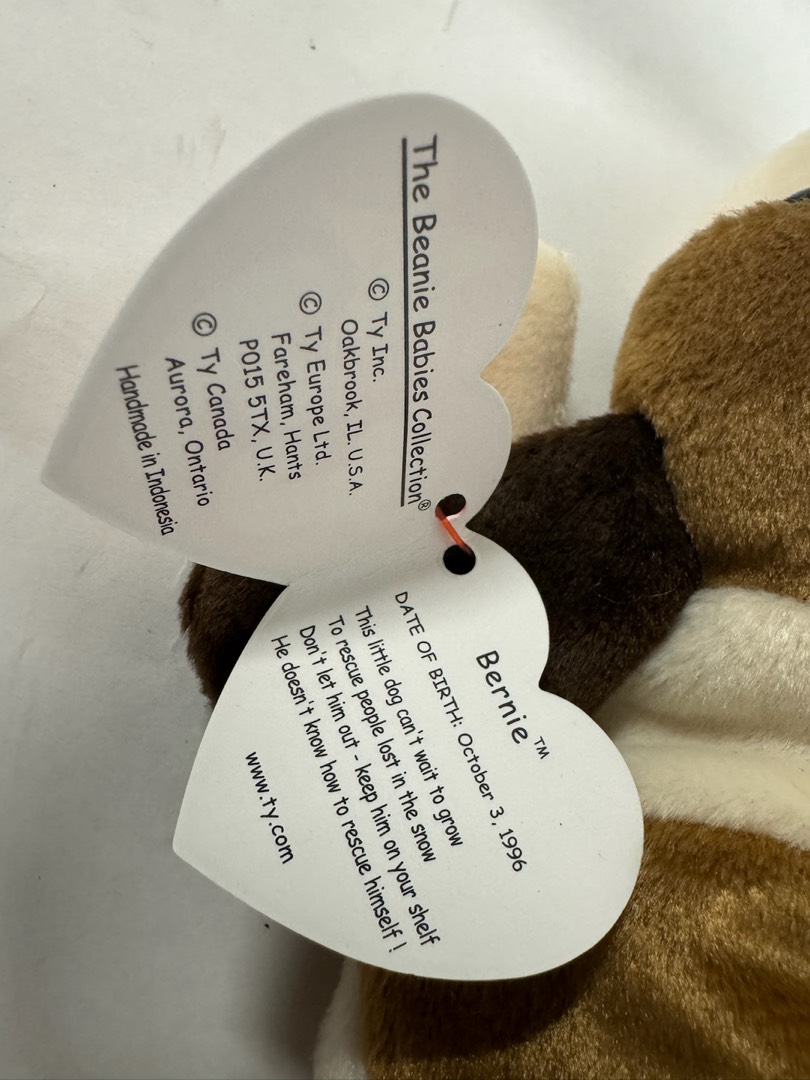 The Beanie Babies Collection®
© Ty Inc.
Oakbrook, IL. U.S.A.
© Ty Europe Ltd.
Fareham, Hants
PO15 5TX, U.K.
© Ty Canada
Aurora, Ontario
Handmade in Indonesia
Bernie™
DATE OF BIRTH: October 3, 1996
This little dog can't wait to grow
To rescue people lost in the snow
Don't let him out - keep him on your shelf
He doesn't know how to rescue himself!
www.ty.com